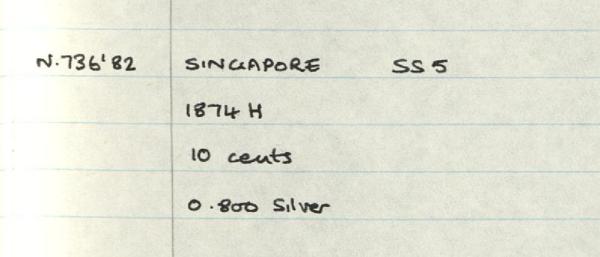 N.736'82 SINGAPORE SS 5
1874 H
10 cents
0.800 Silver